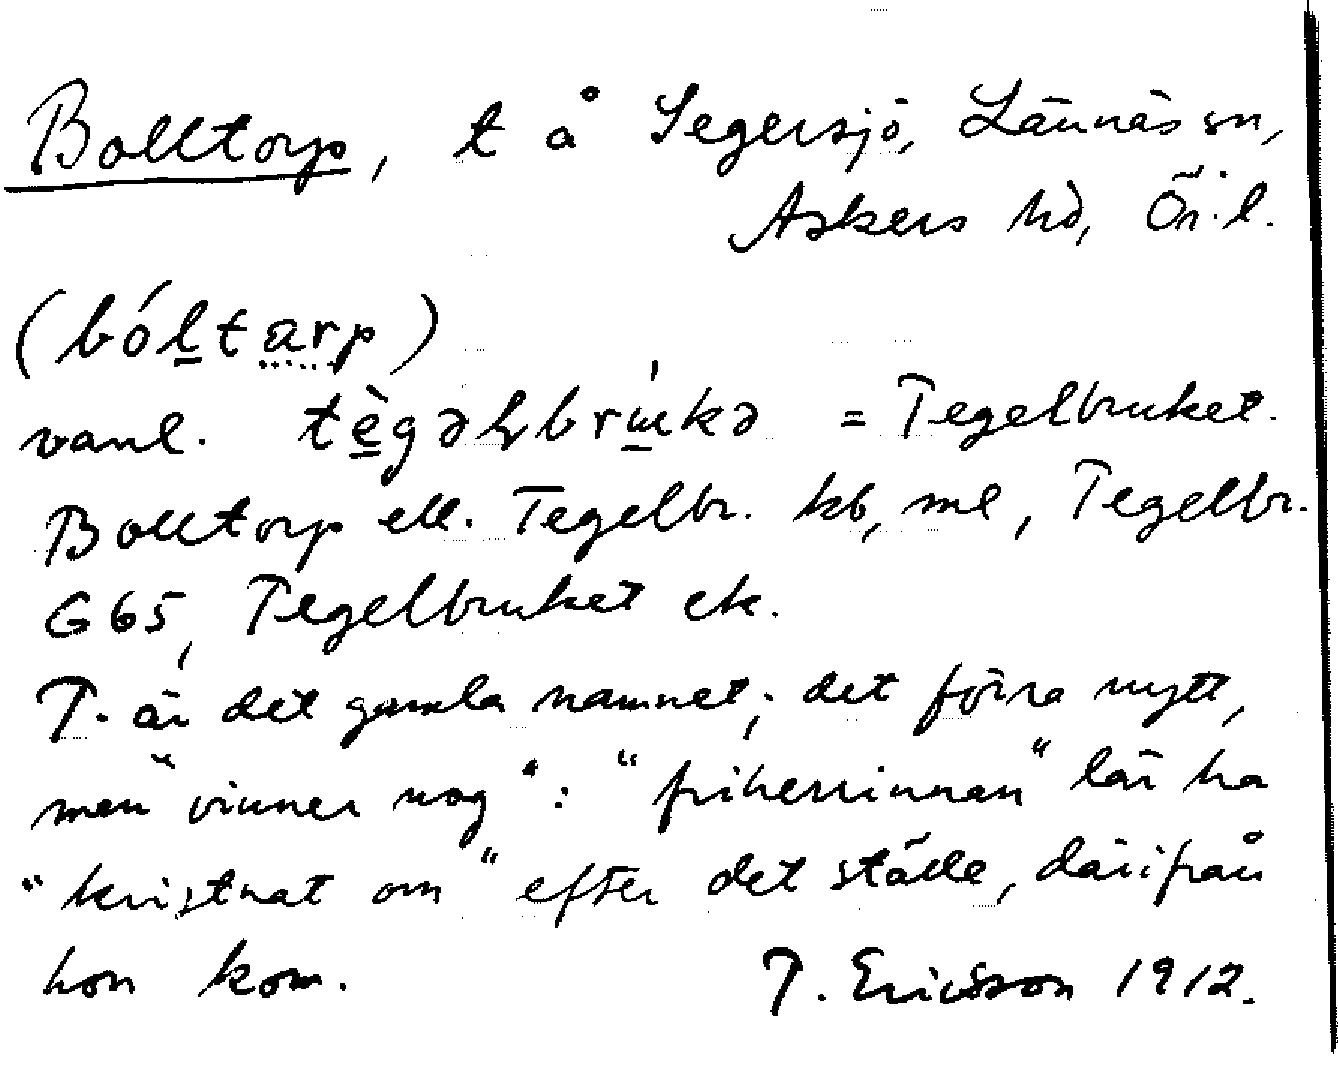 Bolltorp, t å Segersjö, Lännäs sn,
Askers hd, Ör. l.
(bóltarp)
vanl. tègəlbrúkə = Tegelbruket.
Bolltorp ell. Tegelbr. kb, ml, Tegelbr.
G65, Tegelbruket ek.
T. är det gamla namnet; det förra nytt,
men "vinner nog": "friherrinnan" lär ha
"kristnat om" efter det ställe, därifrån
hon kom. T. Ericsson 1912.